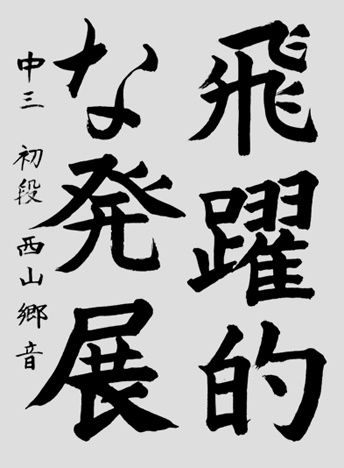 飛躍的
な発展
中三 初段 西山郷音